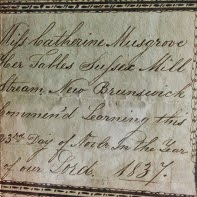 Miss Catherine Musgrove
Her Tables Sussex Mill
Stream New Brunswick
Commen'd Learning this
23rd Day of Novbr In the Year
of our Lord. 1837.